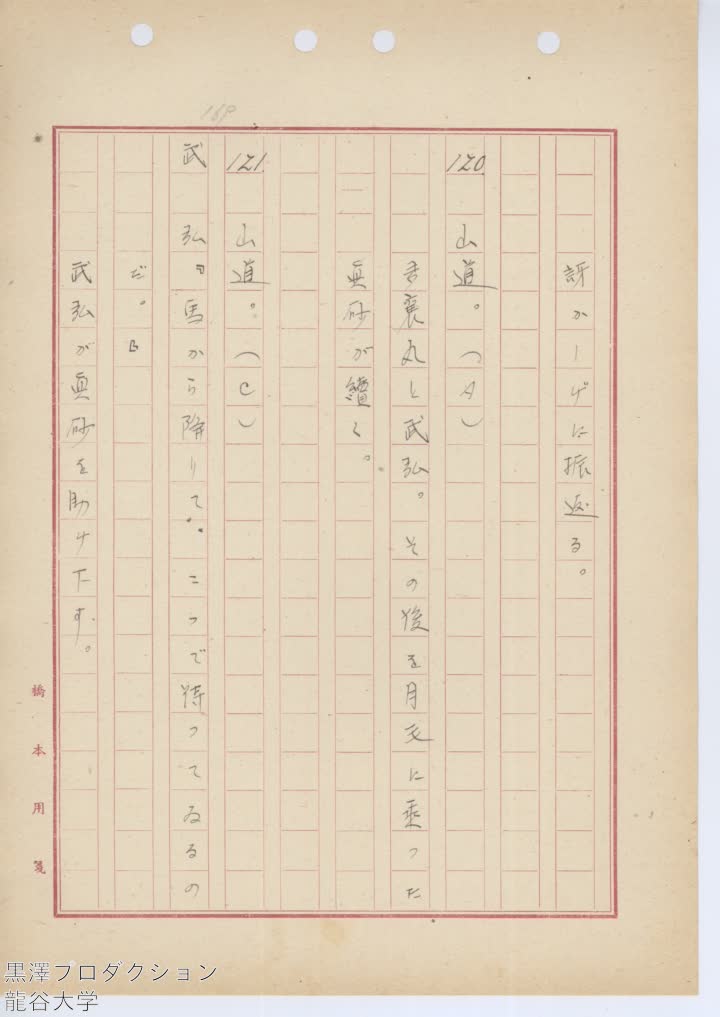 169
訝かしげに振返る。
120 山道。(A)
多襄丸と武弘。その後を月毛に乗った
真砂が續く。
121 山道。(C)
武 弘『馬から降りて、こゝで待ってゐるの
だ。』
武弘が眞砂を助け下す。
橋本用箋
黒澤プロダクション
龍谷大学